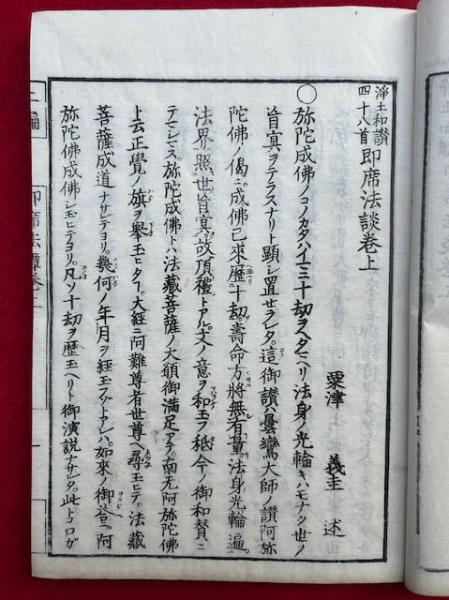 浄土和讃
四十八首
即席法談巻上
粟津 義圭 述
〇弥陀成佛ノコノカタハイマニ十劫ヲヘタマヘリ法身ノ光輪キハモナク世ノ
盲冥ヲテラスナリト顕シ置セラレタ。這御讃ハ曇鸞大師ノ讃阿弥
陀佛ノ偈ニ。成佛已来歴十劫。壽命方將無有量。法身光輪遍
法界。照世盲冥故頂禮トアル。文ノ意ヲ和玉フ。秪今ノ御和賛ニ
テコレマス。弥陀成佛トハ法蔵菩薩ノ大願御満足アテ。南无阿弥陀佛
ト云正覺ノ旗ヲ舉玉ヒタコ。大經ニ阿難尊者世尊ヘ尋玉ヒテ。法蔵
菩薩成道ナサレテヨリ。幾何ノ年月ヲ経玉フゾトアレハ。如來ノ御答ニ。阿
弥陀佛成佛シ玉ヒテヨリ。凡ソ十劫ヲ歴玉ヘリト御演説ナサレタ。此トコロガ